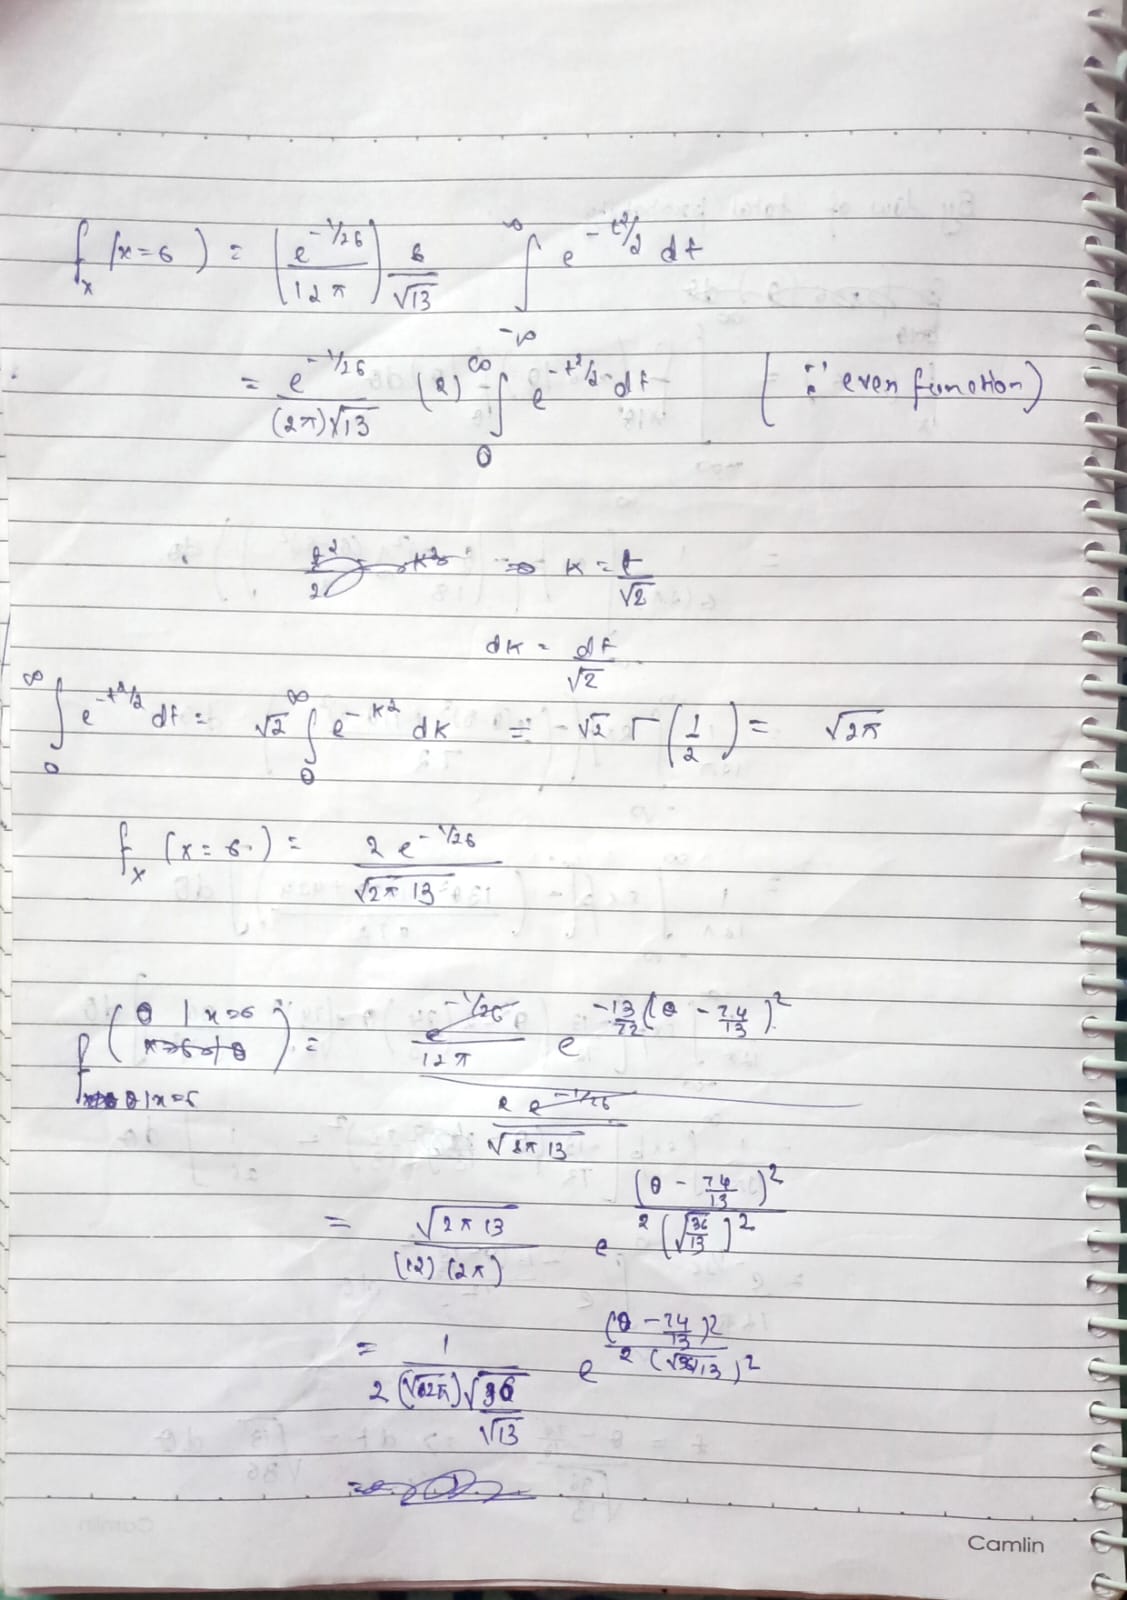 f_x (x=6) = (e^{-1/26} / 12π) 6/√13 ∫_{-∞}^{∞} e^{-t²/2} dt
= e^{-1/26} / (2π)√13 (2) ∫_0^∞ e^{-t²/2} dt (∵ even function)
⇒ k = t/√2
dk = dt/√2
∫_0^∞ e^{-t²/2} dt = √2 ∫_0^∞ e^{-k²} dk = √2 Γ(1/2) = √2π
f_x (x=6) = 2 e^{-1/26} / √2π 13
f_{θ|x=6} (θ | x=6) = (e^{-1/26} / 12π) e^{-13/72 (θ - 24/13)²} / (2 e^{-1/26} / √2π 13)
= √2π 13 / (12)(2π) e^{(θ - 24/13)² / 2(√36/13)²}
= 1 / 2(√2π)√36/√13 e^{(θ - 24/13)² / 2(√36/13)²}
Camlin